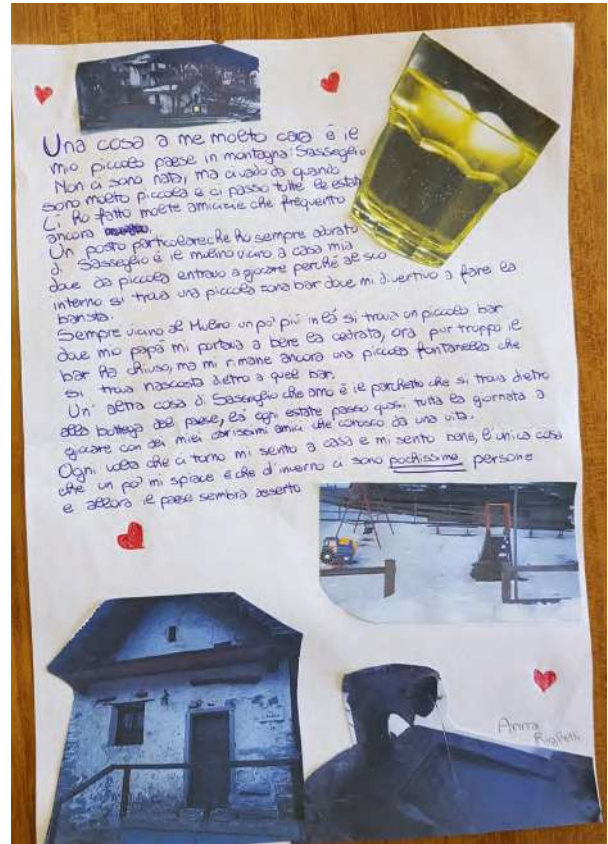 Una cosa a me molto cara è il
mio piccolo paese in montagna: Sasseglio
Non ci sono nata, ma ci vado da quando
sono molto piccola e ci passo tutte le estati
Lì ho fatto molte amicizie che frequento
ancora
Un posto particolare che ho sempre adorato
di Sasseglio è il mulino vicino a casa mia
dove da piccola entravo a giocare perché al suo
interno si trova una piccola zona bar dove mi divertivo a fare la
barista.
Sempre vicino al Mulino un po' più in là si trova un piccolo bar
dove mio papà mi portava a bere la cedrata, ora pur troppo il
bar ha chiuso, ma mi rimane ancora una piccola fontanella che
si trova nascosta dietro a quel bar.
Un' altra cosa di Sasseglio che amo è il parchetto che si trova dietro
alla bottega del paese, là ogni estate passo quasi tutta la giornata a
giocare con dei miei carissimi amici che conosco da una vita.
Ogni volta che ci torno mi sento a casa e mi sento bene, l'unica cosa
che un po' mi spiace è che d'inverno ci sono pochissime persone
e allora il paese sembra deserto
Anna
Righetti